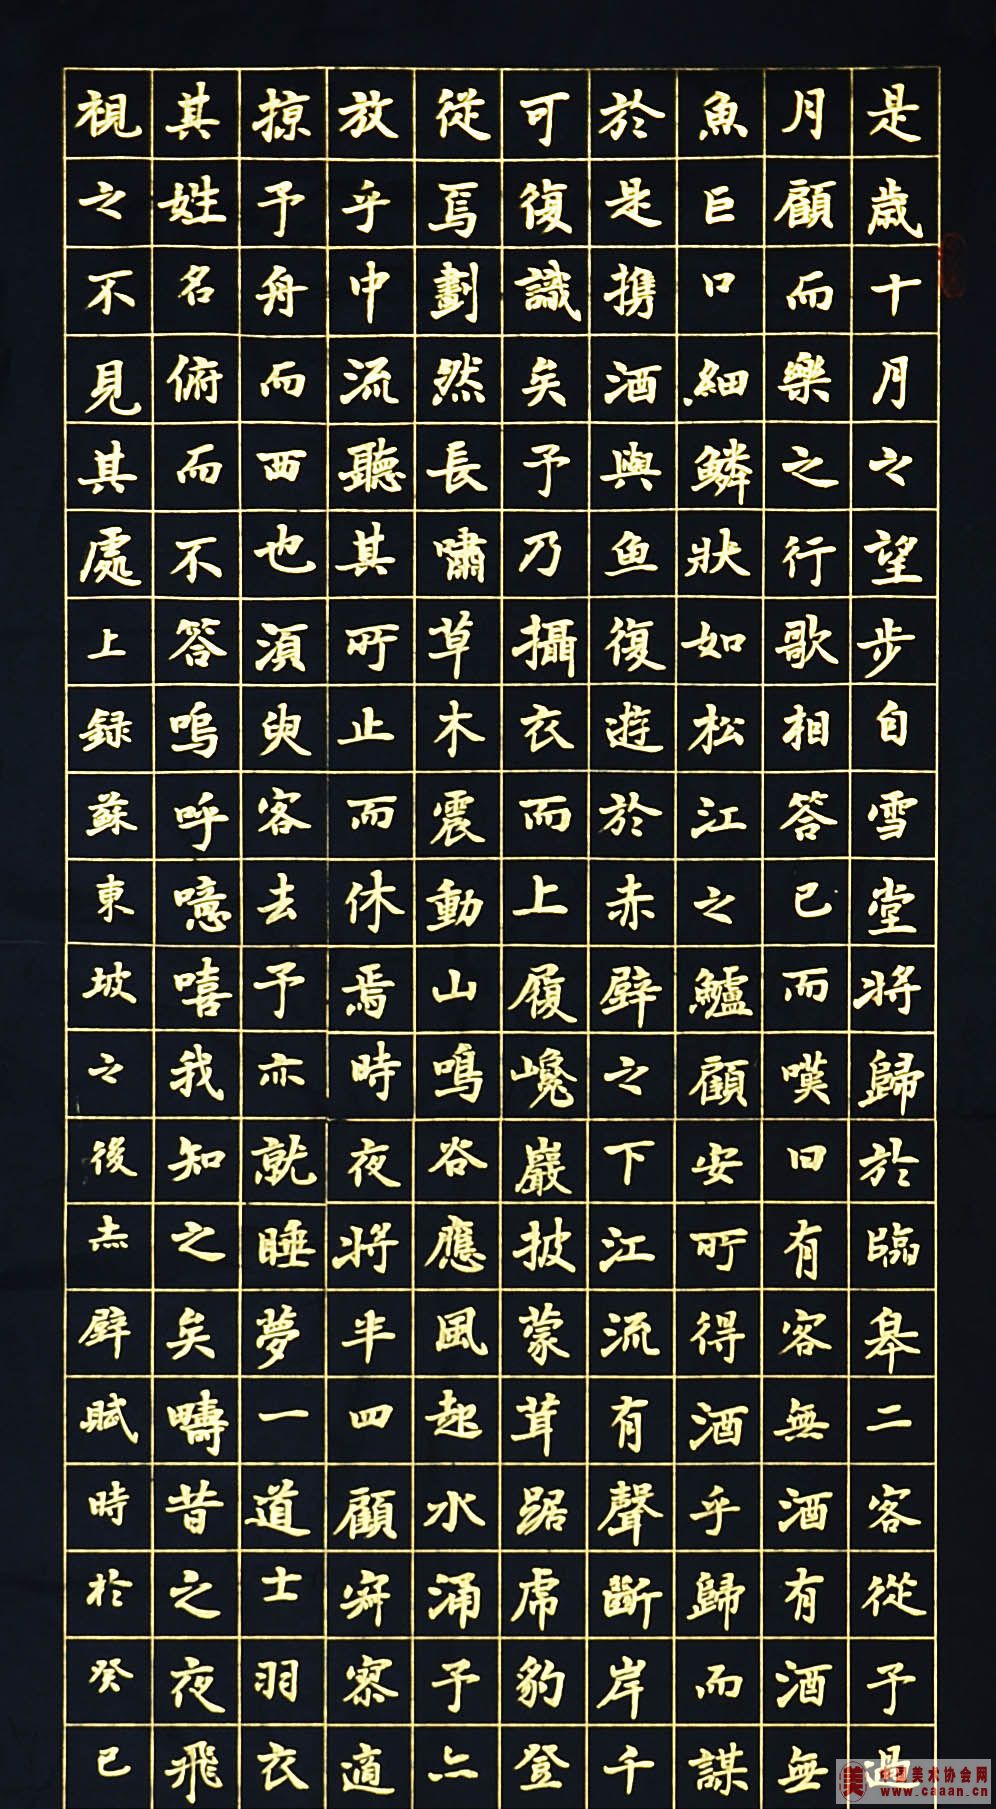 是歲十月之望步自雪堂將歸於臨皋二客從予過
月顧而樂之行歌相答已而嘆曰有客無酒有酒無
魚巨口細鱗狀如松江之鱸顧安所得酒乎歸而謀
於是携酒與鱼復遊於赤壁之下江流有聲斷岸千
可復識矣予乃攝衣而上履巉巖披蒙茸踞虎豹登
從焉劃然長嘯草木震動山鳴谷應風起水涌予亦
放乎中流聽其所止而休焉時夜將半四顧寂寥適
掠予舟而西也須臾客去予亦就睡夢一道士羽衣
其姓名俯而不答嗚呼噫嘻我知之矣疇昔之夜飛
視之不見其處上録蘇東坡之後赤壁賦時於癸巳
美
中国美术协会网
www.caaan.cn